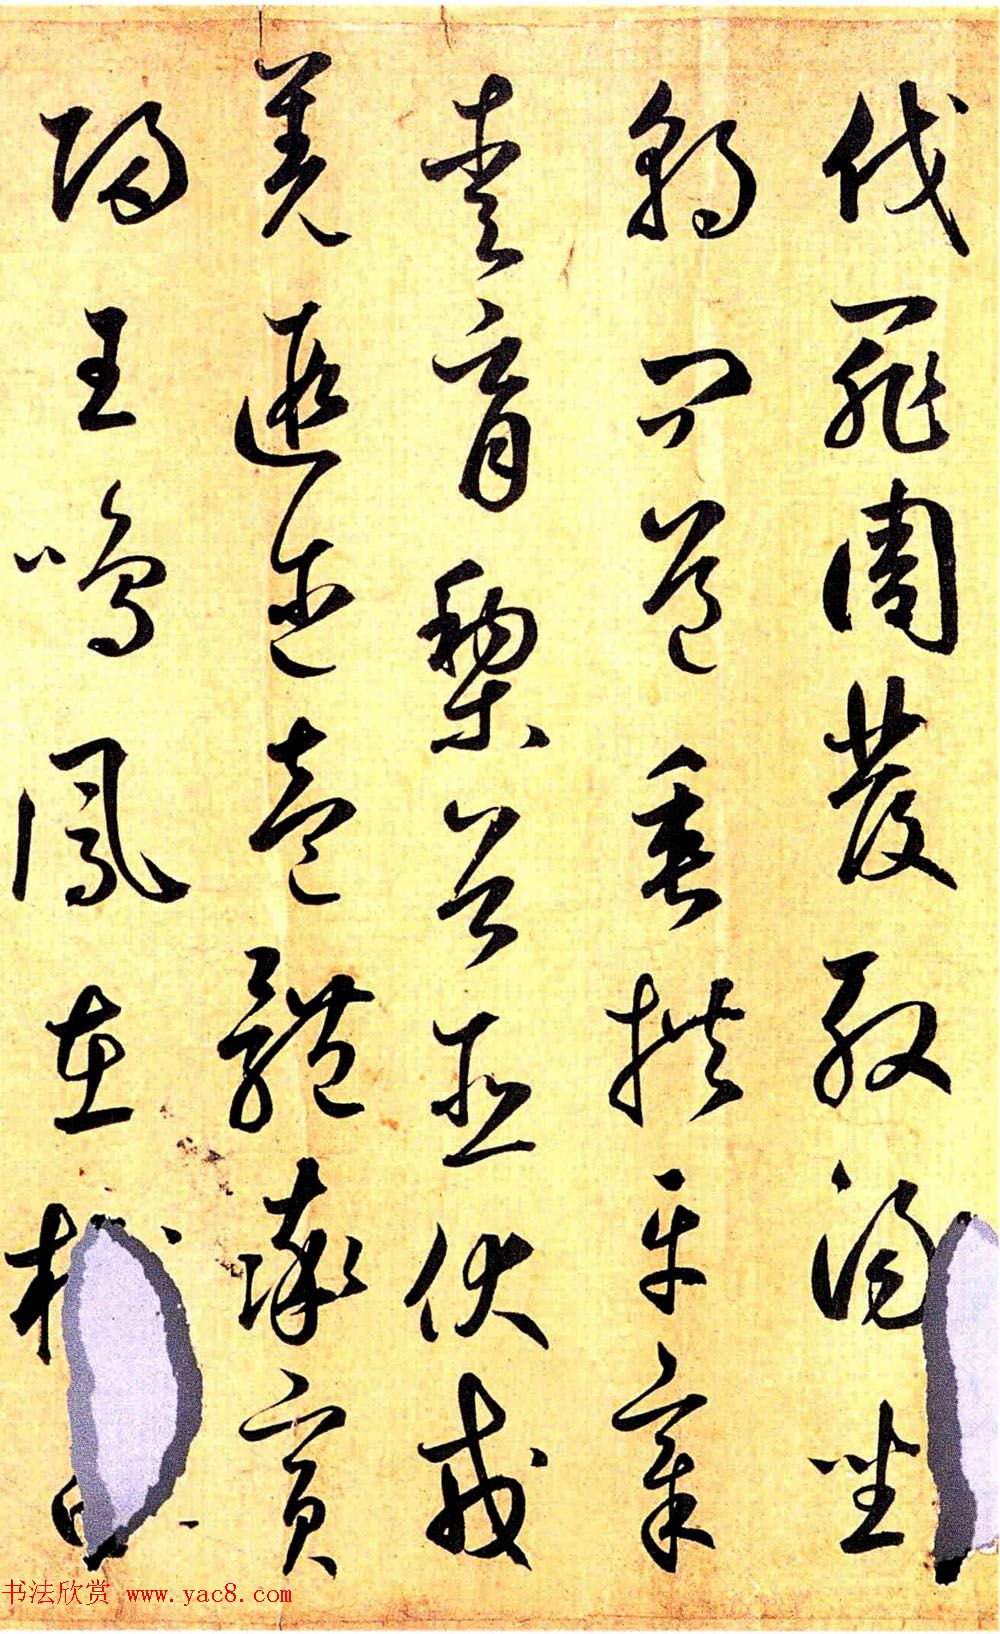 伐罪周發殷湯坐
朝問道垂拱平章
愛育黎首臣伏戎
羌遐邇壹體率賓
歸王鳴鳳在
书法欣赏 www.yac8.com